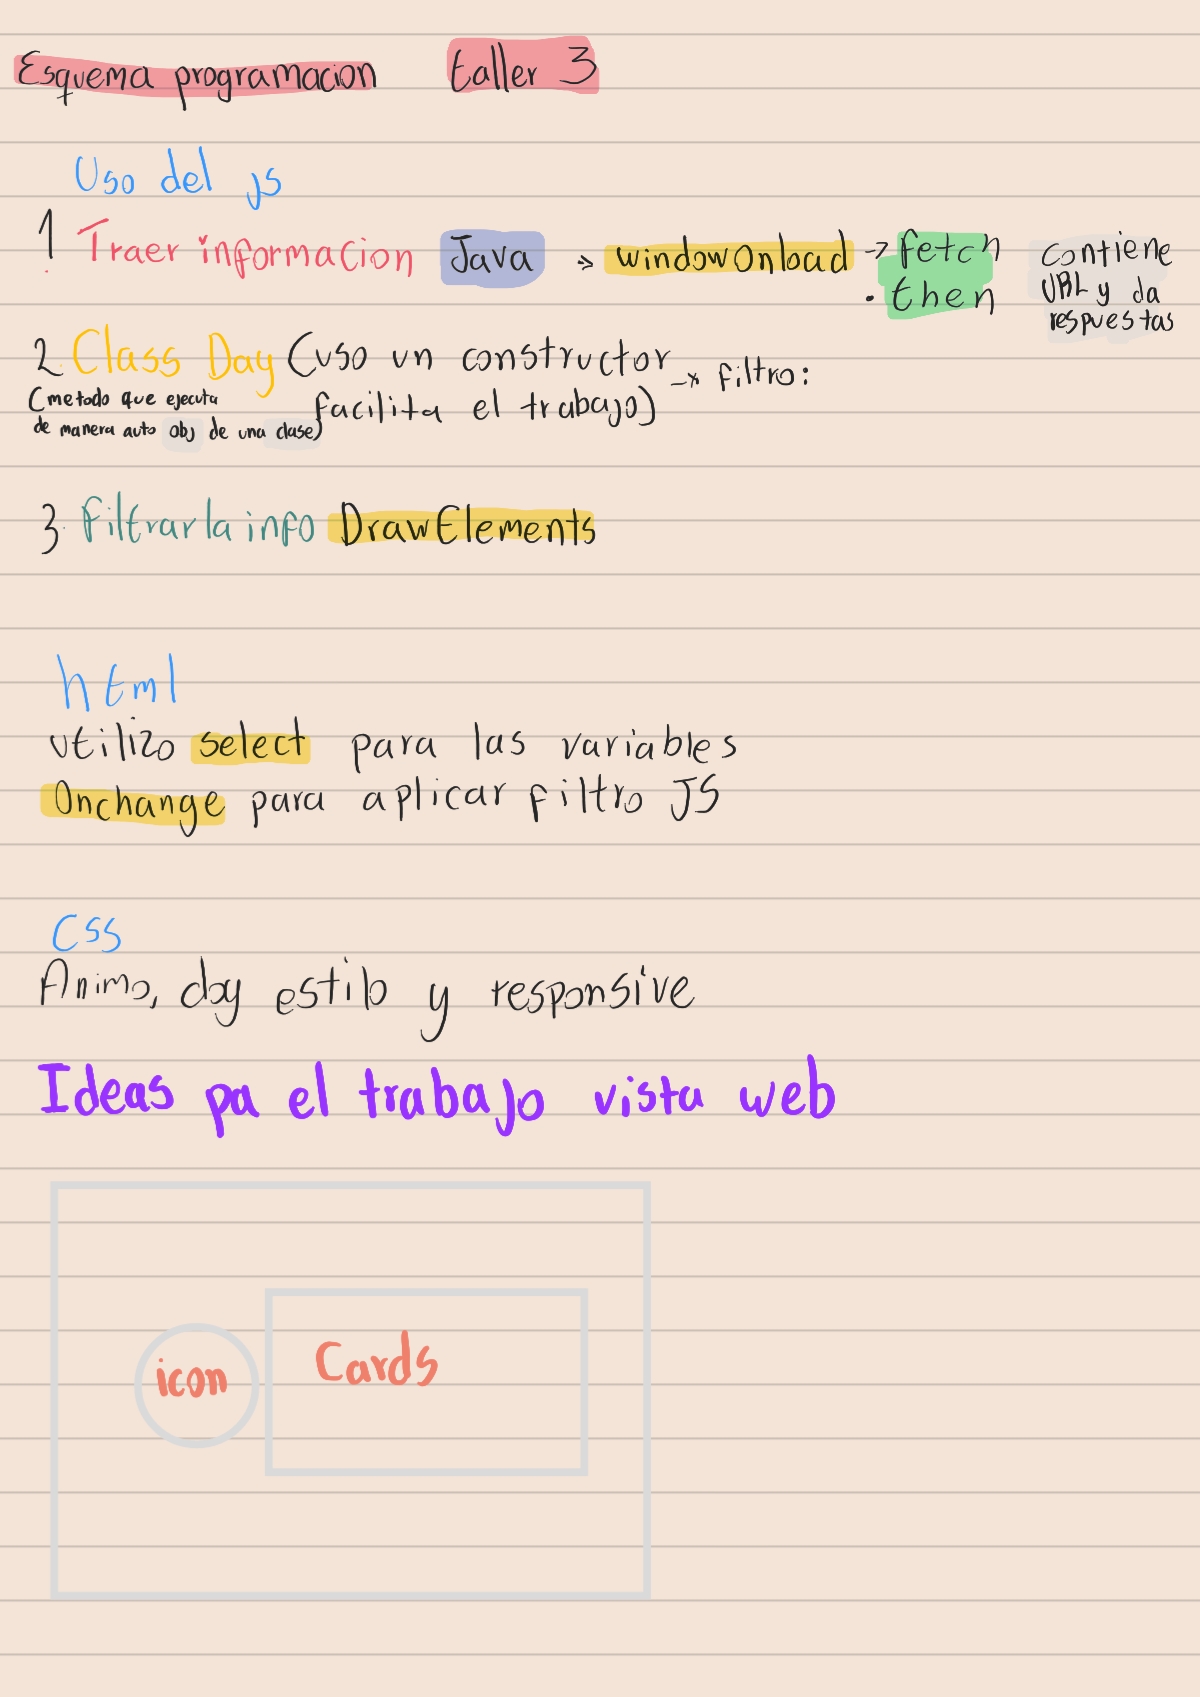 Esquema programacion taller 3
Uso del js
1. Traer informacion Java -> windowOnload -> fetch contiene
. then URL y da
respuestas
2. Class Day (uso un constructor -> filtro:
(metodo que ejecuta facilita el trabajo)
de manera auto obj de una clase)
3. Filtrar la info DrawElements
html
utilizo select para las variables
Onchange para aplicar filtro JS
Css
Animo, doy estilo y responsive
Ideas pa el trabajo vista web
icon Cards